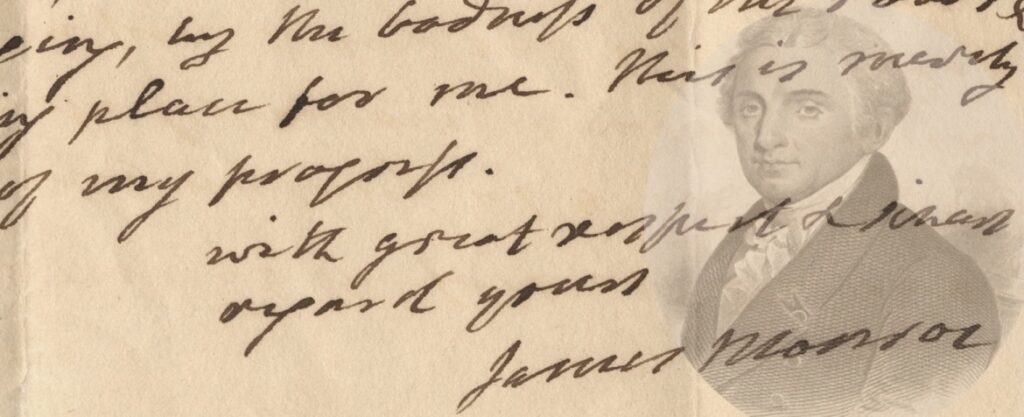 by the badness of the roads
place for me. This is merely
of my progress.
with great respect & sincere
regard yours
James Monroe